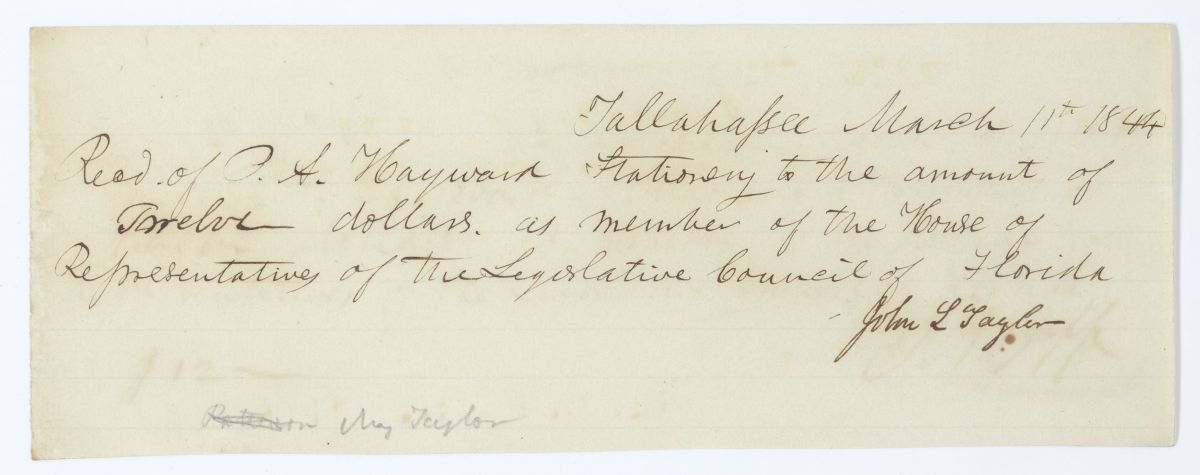 Tallahassee March 11th 1844
Recd. of P. A. Hayward Stationery to the amount of
Twelve dollars. as member of the House of
Representatives of the Legislative Council of Florida
John L Taylor
Taylor